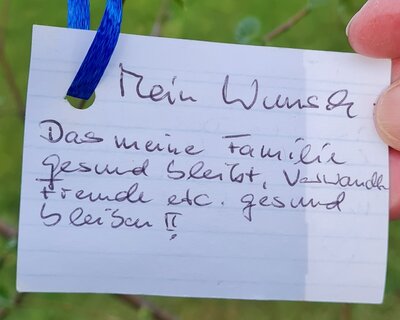 Mein Wunsch
Das meine Familie
gesund bleibt, Verwandte
Freunde etc. gesund
bleiben !!